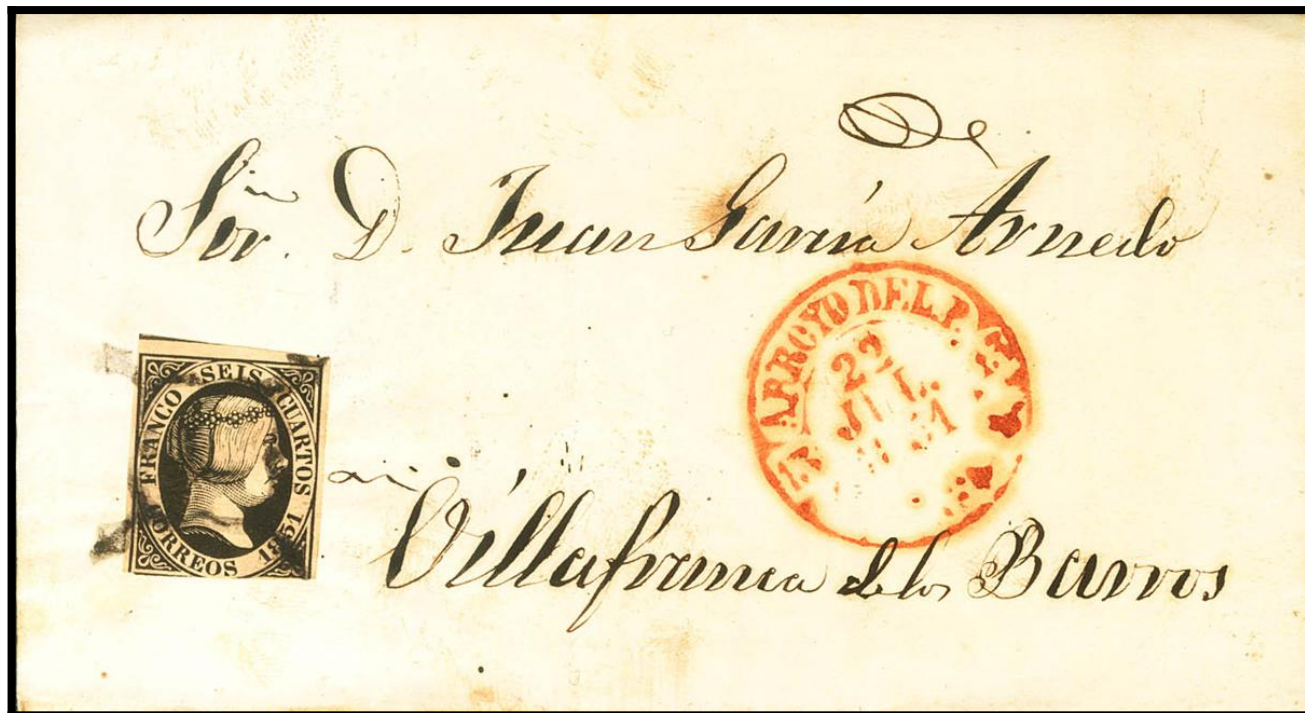 De
Sor. D. Juan García Arnedo
ARROYO DEL P.
22
JUL.
FRANCO SEIS CUARTOS
CORREOS 1851
Villafranca de los Barros